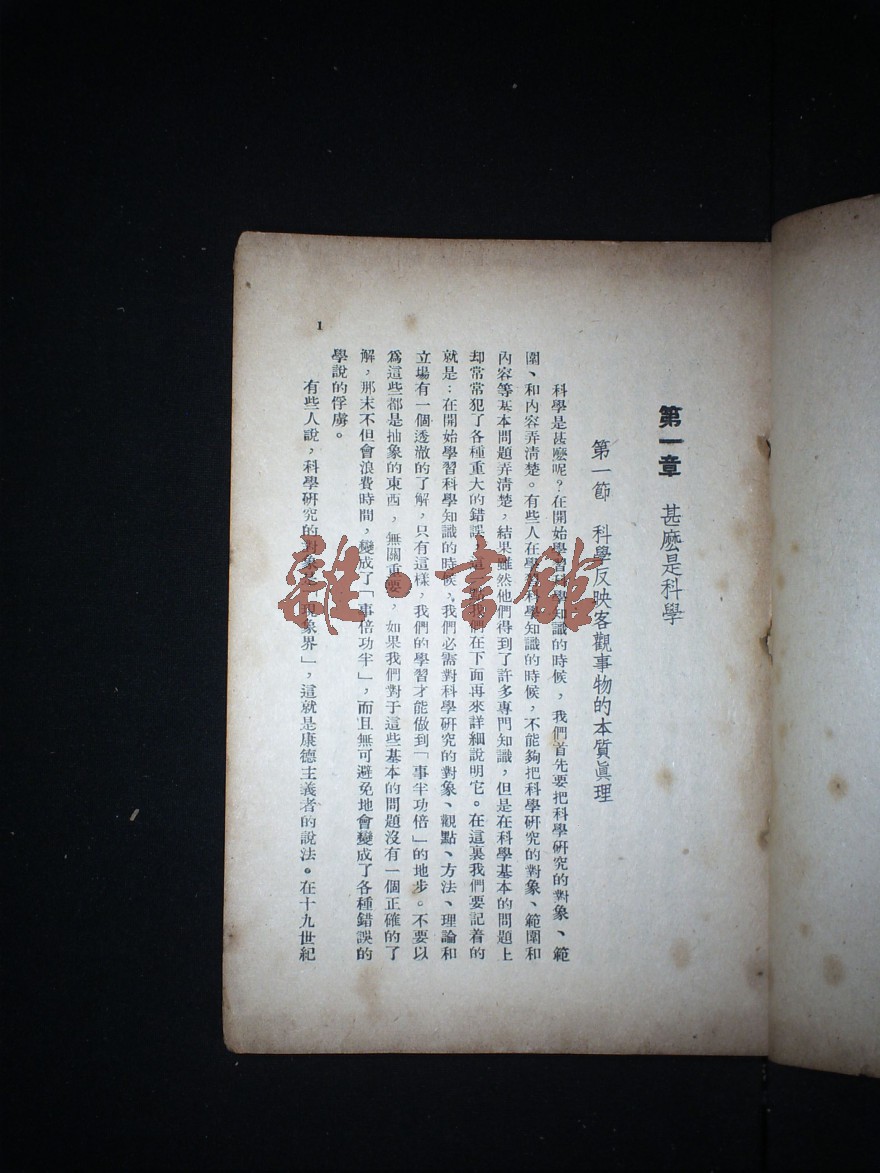 第一章 甚麽是科學
第一節 科學反映客觀事物的本質眞理
科學是甚麽呢？在開始學習科學知識的時候，我們首先要把科學研究的對象、範
圍、和內容弄清楚。有些人在學習科學知識的時候，不能夠把科學研究的對象、範圍和
內容等基本問題弄清楚，結果雖然他們得到了許多專門知識，但是在科學基本的問題上
却常常犯了各種重大的錯誤，這 我們在下面再來詳細說明它。在這裏我們要記着的
就是：在開始學習科學知識的時候，我們必需對科學研究的對象、觀點、方法、理論和
立場有一個透澈的了解，只有這樣，我們的學習才能做到「事半功倍」的地步。不要以
爲這些都是抽象的東西，無關重要，如果我們對于這些基本的問題沒有一個正確的了
解，那末不但會浪費時間，變成了「事倍功半」，而且無可避免地會變成了各種錯誤的
學說的俘虜。
有些人說，科學研究的對象是「現象界」，這就是康德主義者的說法。在十九世紀
1
雜·書館